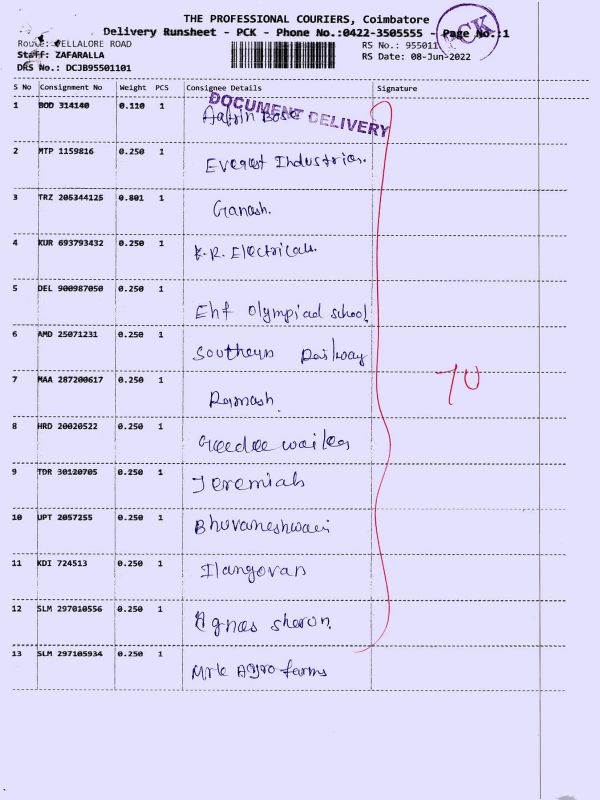 THE PROFESSIONAL COURIERS, Coimbatore
Delivery Runsheet - PCK - Phone No.:0422-3505555 - Page No.:1
PCK
Route: VELLALORE ROAD
RS No.: 955011
Staff: ZAFARALLA
RS Date: 08-Jun-2022
DRS No.: DCJB95501101
S No Consignment No Weight PCS Consignee Details Signature
DOCUMENT DELIVERY
1 BOD 314140 0.110 1 Aafrin Bose
2 MTP 1159816 0.250 1 Everest Industries.
3 TRZ 205344125 0.801 1 Ganash.
4 KUR 693793432 0.250 1 K.R. Electricals.
5 DEL 900987050 0.250 1 Ehf Olympiad school.
6 AMD 25071231 0.250 1 Southern Railway
7 MAA 287200617 0.250 1 Ramash.
70
8 HRD 20020522 0.250 1 Geedee
9 TDR 30120705 0.250 1 Jeremiah
10 UPT 2057255 0.250 1 Bhuvaneshwari
11 KDI 724513 0.250 1 Ilangovan
12 SLM 297010556 0.250 1 Agnas sharon.
13 SLM 297105934 0.250 1 Mrk Agro farms